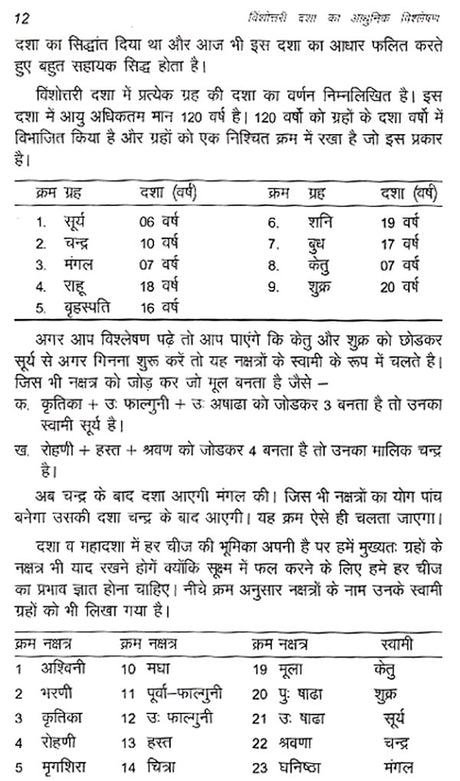 12 विंशोत्तरी दशा का आधुनिक विश्लेषण
दशा का सिद्धांत दिया था और आज भी इस दशा का आधार फलित करते
हुए बहुत सहायक सिद्ध होता है।
विंशोत्तरी दशा में प्रत्येक ग्रह की दशा का वर्णन निम्नलिखित है। इस
दशा में आयु अधिकतम मान 120 वर्ष है। 120 वर्षो को ग्रहों के दशा वर्षो में
विभाजित किया है और ग्रहों को एक निश्चित क्रम में रखा है जो इस प्रकार
है।
क्रम ग्रह दशा (वर्ष) क्रम ग्रह दशा (वर्ष)
1. सूर्य 06 वर्ष 6. शनि 19 वर्ष
2. चन्द्र 10 वर्ष 7. बुध 17 वर्ष
3. मंगल 07 वर्ष 8. केतु 07 वर्ष
4. राहू 18 वर्ष 9. शुक्र 20 वर्ष
5. बृहस्पति 16 वर्ष
अगर आप विश्लेषण पढ़े तो आप पाएंगे कि केतु और शुक्र को छोडकर
सूर्य से अगर गिनना शुरू करें तो यह नक्षत्रों के स्वामी के रूप में चलते है।
जिस भी नक्षत्र को जोड़ कर जो मूल बनता है जैसे –
क. कृतिका + उः फाल्गुनी + उः अषाढा को जोडकर 3 बनता है तो उनका
स्वामी सूर्य है।
ख. रोहणी + हस्त + श्रवण को जोडकर 4 बनता है तो उनका मालिक चन्द्र
है।
अब चन्द्र के बाद दशा आएगी मंगल की। जिस भी नक्षत्रों का योग पांच
बनेगा उसकी दशा चन्द्र के बाद आएगी। यह क्रम ऐसे ही चलता जाएगा।
दशा व महादशा में हर चीज की भूमिका अपनी है पर हमें मुख्यतः ग्रहों के
नक्षत्र भी याद रखने होगें क्योंकि सूक्ष्म में फल करने के लिए हमे हर चीज
का प्रभाव ज्ञात होना चाहिए। नीचे क्रम अनुसार नक्षत्रों के नाम उनके स्वामी
ग्रहों को भी लिखा गया है।
क्रम नक्षत्र क्रम नक्षत्र क्रम नक्षत्र स्वामी
1 अश्विनी 10 मघा 19 मूला केतु
2 भरणी 11 पूर्वा–फाल्गुनी 20 पुः षाढा शुक्र
3 कृतिका 12 उः फाल्गुनी 21 उः षाढा सूर्य
4 रोहणी 13 हस्त 22 श्रवणा चन्द्र
5 मृगशिरा 14 चित्रा 23 घनिष्ठा मंगल